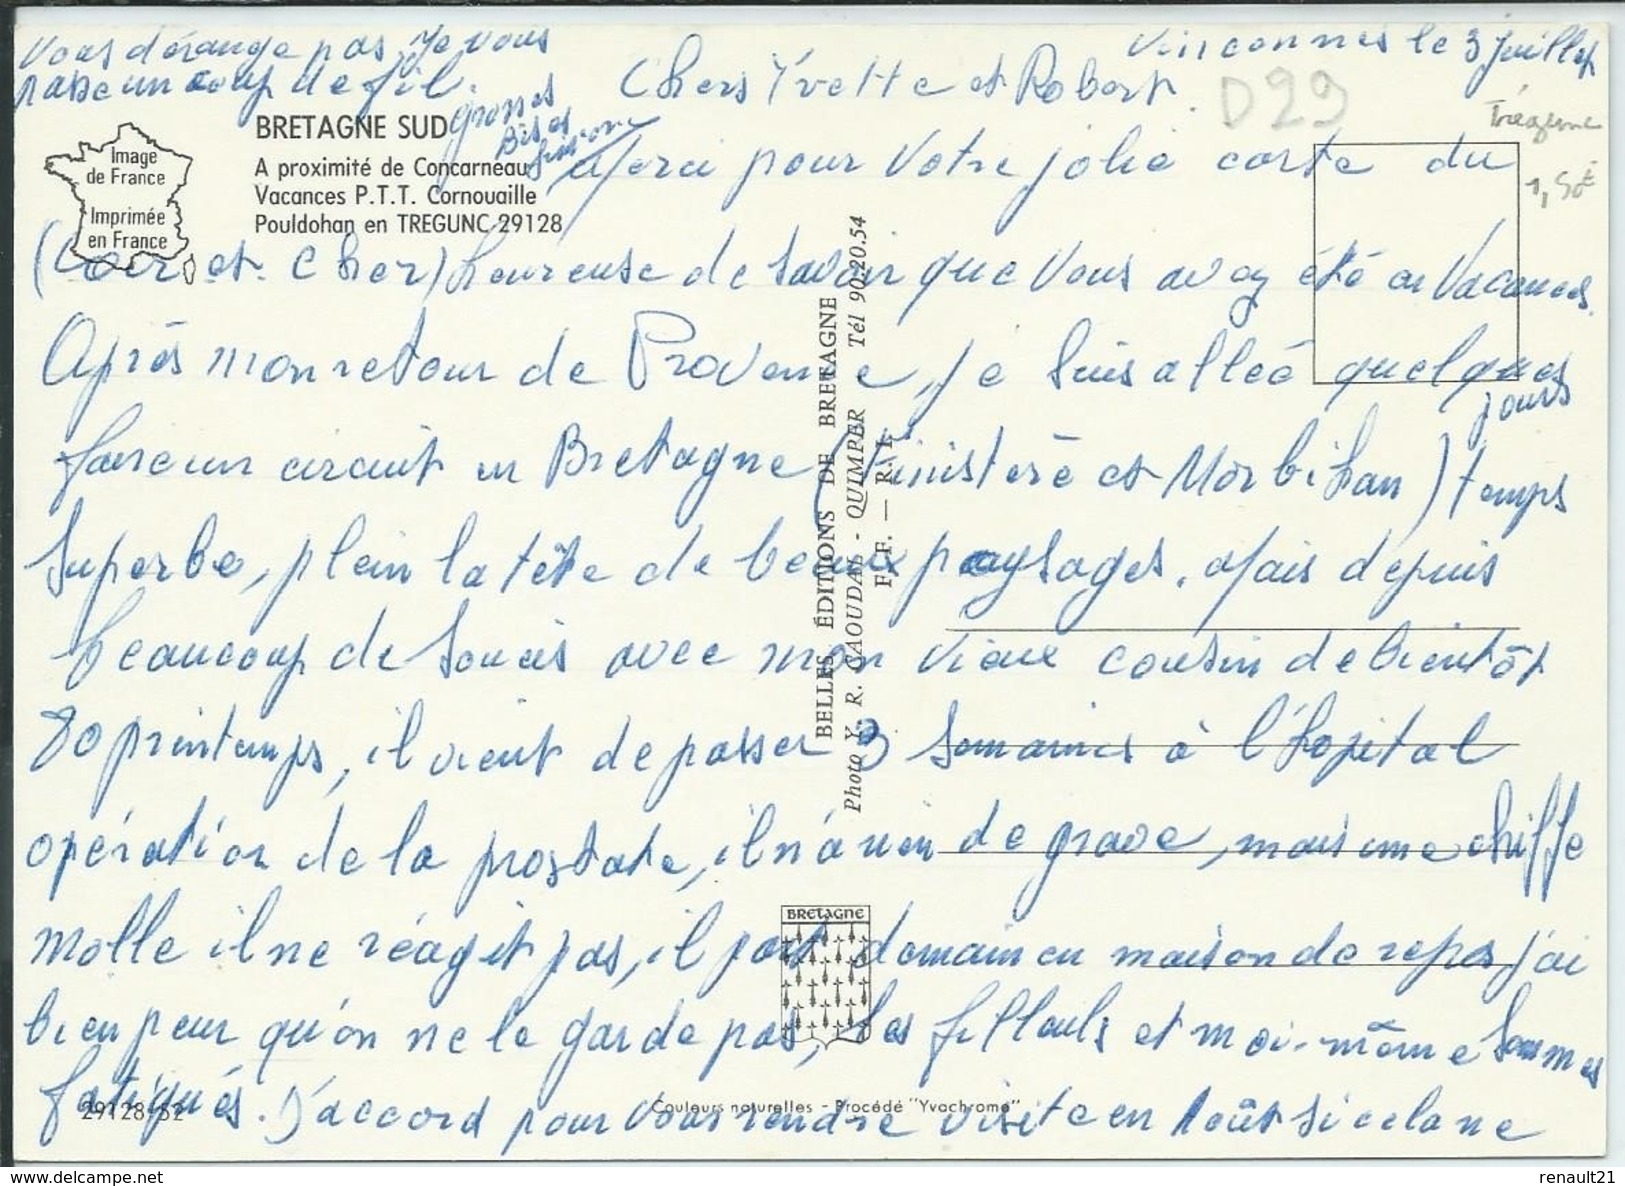 Vincennes le 3 juillet
Chers Yvette et Robert.
D29
Trégunc
1,50€
Merci pour votre jolie carte du
(Loir et Cher) heureuse de savoir que vous avez été en vacances.
Après mon retour de Provence, je suis allée quelques
jours
faire un circuit en Bretagne (Finistère et Morbihan) temps
superbe, plein la tête de beaux paysages. Mais depuis
beaucoup de soucis avec mon vieux cousin de bientôt
80 printemps, il vient de passer 3 semaines à l'hopital
opération de la prostate, il n'a rien de grave, mais une chiffe
molle il ne réagit pas, il part demain en maison de repos, j'ai
bien peur qu'on ne le garde pas, les filleuls et moi-même sommes
fatigués. D'accord pour vous rendre visite en Août si cela ne
vous dérange pas, je vous
passe un coup de fil.
Grosses
Bises
BRETAGNE SUD
A proximité de Concarneau
Vacances P.T.T. Cornouaille
Pouldohan en TREGUNC 29128
Image
de France
Imprimée
en France
BELLES ÉDITIONS DE BRETAGNE
Photo Y. R. CAOUDAL - QUIMPER Tél 90.20.54
F. F. — R. I.
BRETAGNE
29128-52
Couleurs naturelles - Procédé "Yvochrome"
renault21